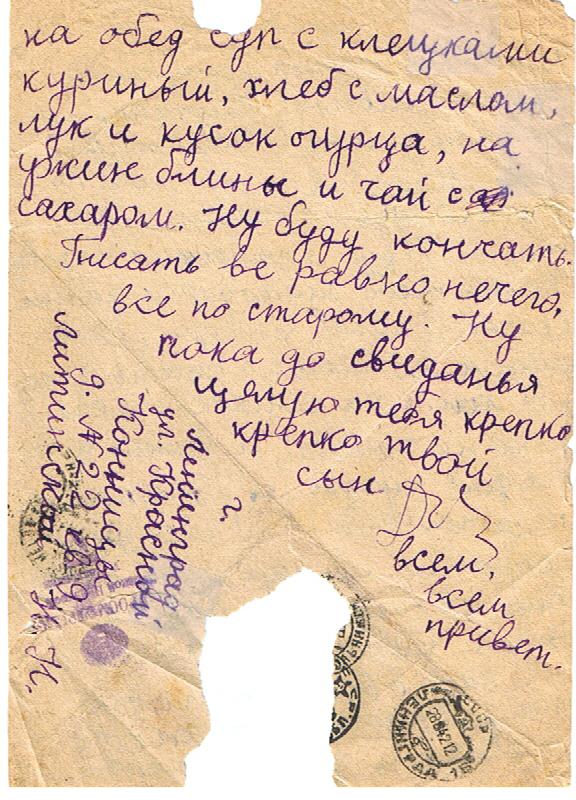 на обед суп с клецками
куриный, хлеб с маслом,
лук и кусок огурца, на
ужин блины и чай с
сахаром. Ну буду кончать.
Писать ве равно нечего,
все по старому. Ну
пока до свиданья
целую тебя крепко
крепко твой
сын
всем,
всем
привет.
г. Ленинград
ул. Красной
Конницы
д. № 22 кв 9
Литинской Н. Н.
СССР
ЛЕНИНГРАД